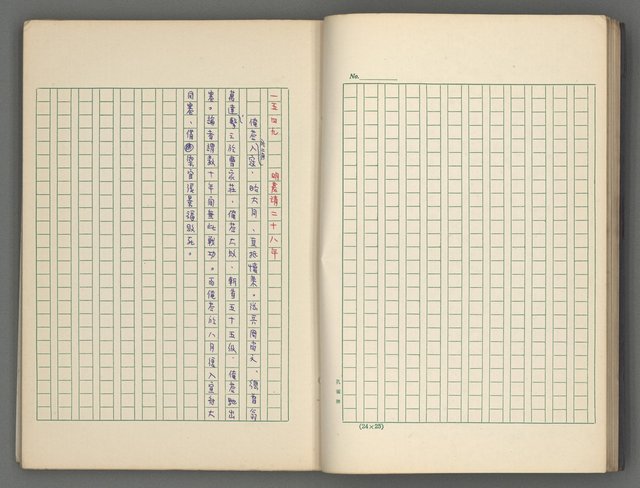 No.
一五四九 明嘉靖二十八年
俺荅入寇,略大同,直抵懷來。總兵周尚文,總督翁
萬達擊之於曹家莊,俺荅大敗,斬首五十五級,俺荅馳出
塞。論者謂數十年間無此戰功。而俺荅於八月復入寇大
同塞,備禦官
敗死。
(24×25)